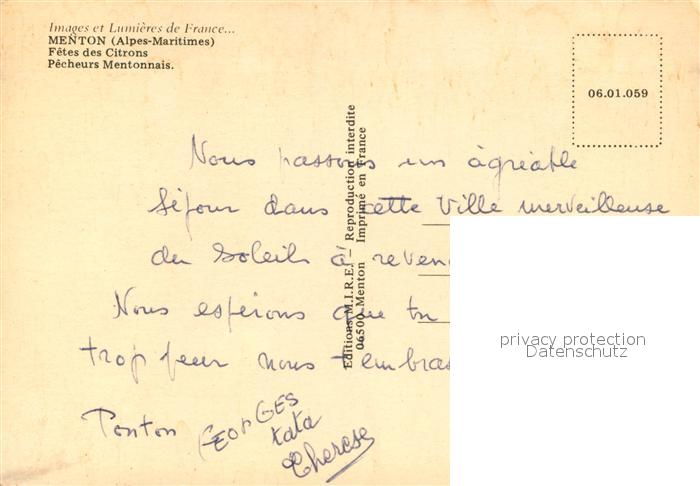 Images et Lumières de France...
MENTON (Alpes-Maritimes)
Fêtes des Citrons
Pêcheurs Mentonnais.
06.01.059
Editions M.I.R.E. — Reproduction interdite
06500 Menton Imprimé en France
Nous passons un agréable
séjour dans cette Ville merveilleuse
du soleil à
Nous espérons que tu
trop peur nous
Tonton GEORGES
tata
Therese
privacy protection
Datenschutz